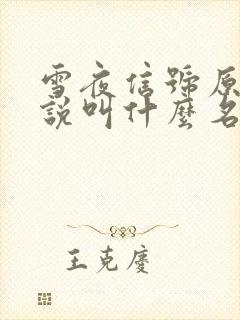 雪夜信號原
說叫什麼名
王克慶